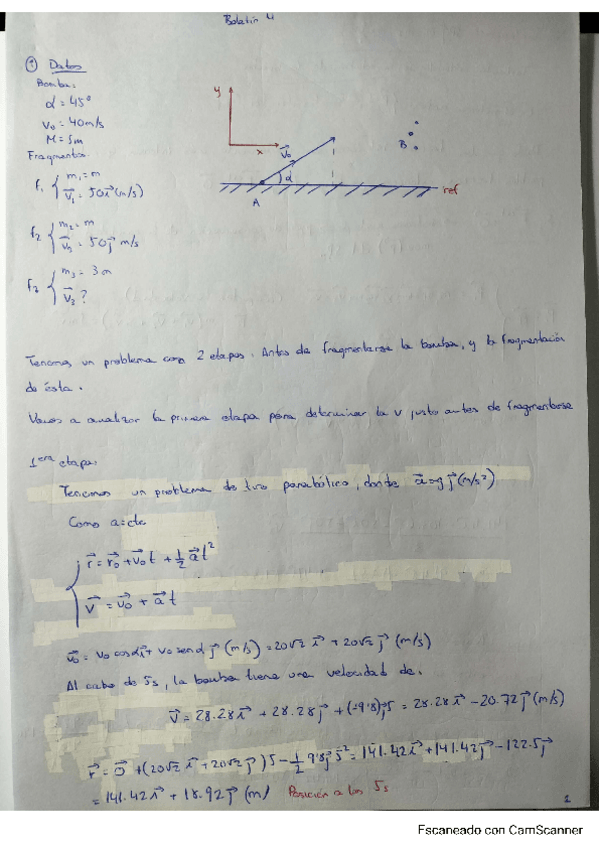 Boletín 4
① Datos
Bomba:
α = 45º
v₀ = 40 m/s
M = 5m
Fragmentos.
f₁ { m₁ = m
v⃗₁ = 50 i⃗ (m/s)
f₂ { m₂ = m
v⃗₂ = 50 j⃗ m/s
f₃ { m₃ = 3m
v⃗₃ ?
y
x
v⃗₀
α
A
B
ref
Tenemos un problema con 2 etapas. Antes de fragmentarse la bomba, y la fragmentación
de ésta.
Vamos a analizar la primera etapa para determinar la v justo antes de fragmentarse
1era etapa:
Tenemos un problema de tiro parabólico, donde a⃗ = g j⃗ (m/s²)
Como a = cte
r⃗ = r⃗₀ + v⃗₀ t + 1/2 a⃗ t²
v⃗ = v⃗₀ + a⃗ t
v⃗₀ = v₀ cosα i⃗ + v₀ senα j⃗ (m/s) = 20√2 i⃗ + 20√2 j⃗ (m/s)
Al cabo de 5s, la bomba tiene una velocidad de:
v⃗ = 28.28 i⃗ + 28.28 j⃗ + (-9.8) j⃗ 5 = 28.28 i⃗ - 20.72 j⃗ (m/s)
r⃗ = 0⃗ + (20√2 i⃗ + 20√2 j⃗) 5 - 1/2 9.8 j⃗ 5² = 141.42 i⃗ + 141.42 j⃗ - 122.5 j⃗
= 141.42 i⃗ + 18.92 j⃗ (m) Posición a los 5s
1
Escaneado con CamScanner